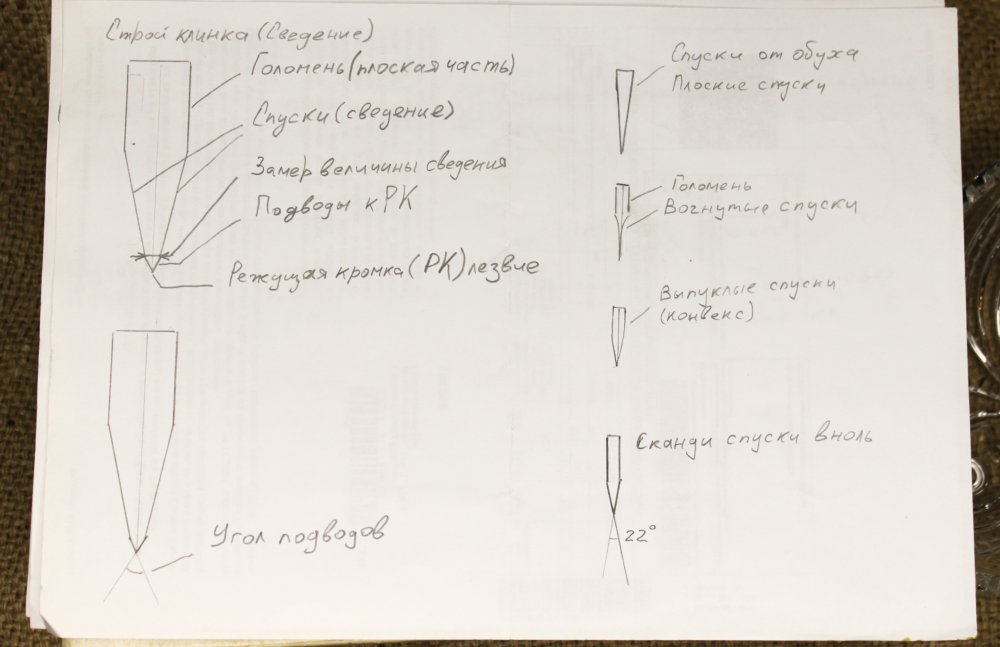 Строй клинка (Сведение)
Голомень (плоская часть)
Спуски (сведение)
Замер величины сведения
Подводы к РК
Режущая кромка (РК) лезвие
Угол подводов
Спуски от обуха
Плоские спуски
Голомень
Вогнутые спуски
Выпуклые спуски
(конвекс)
Сканди спуски вноль
22°